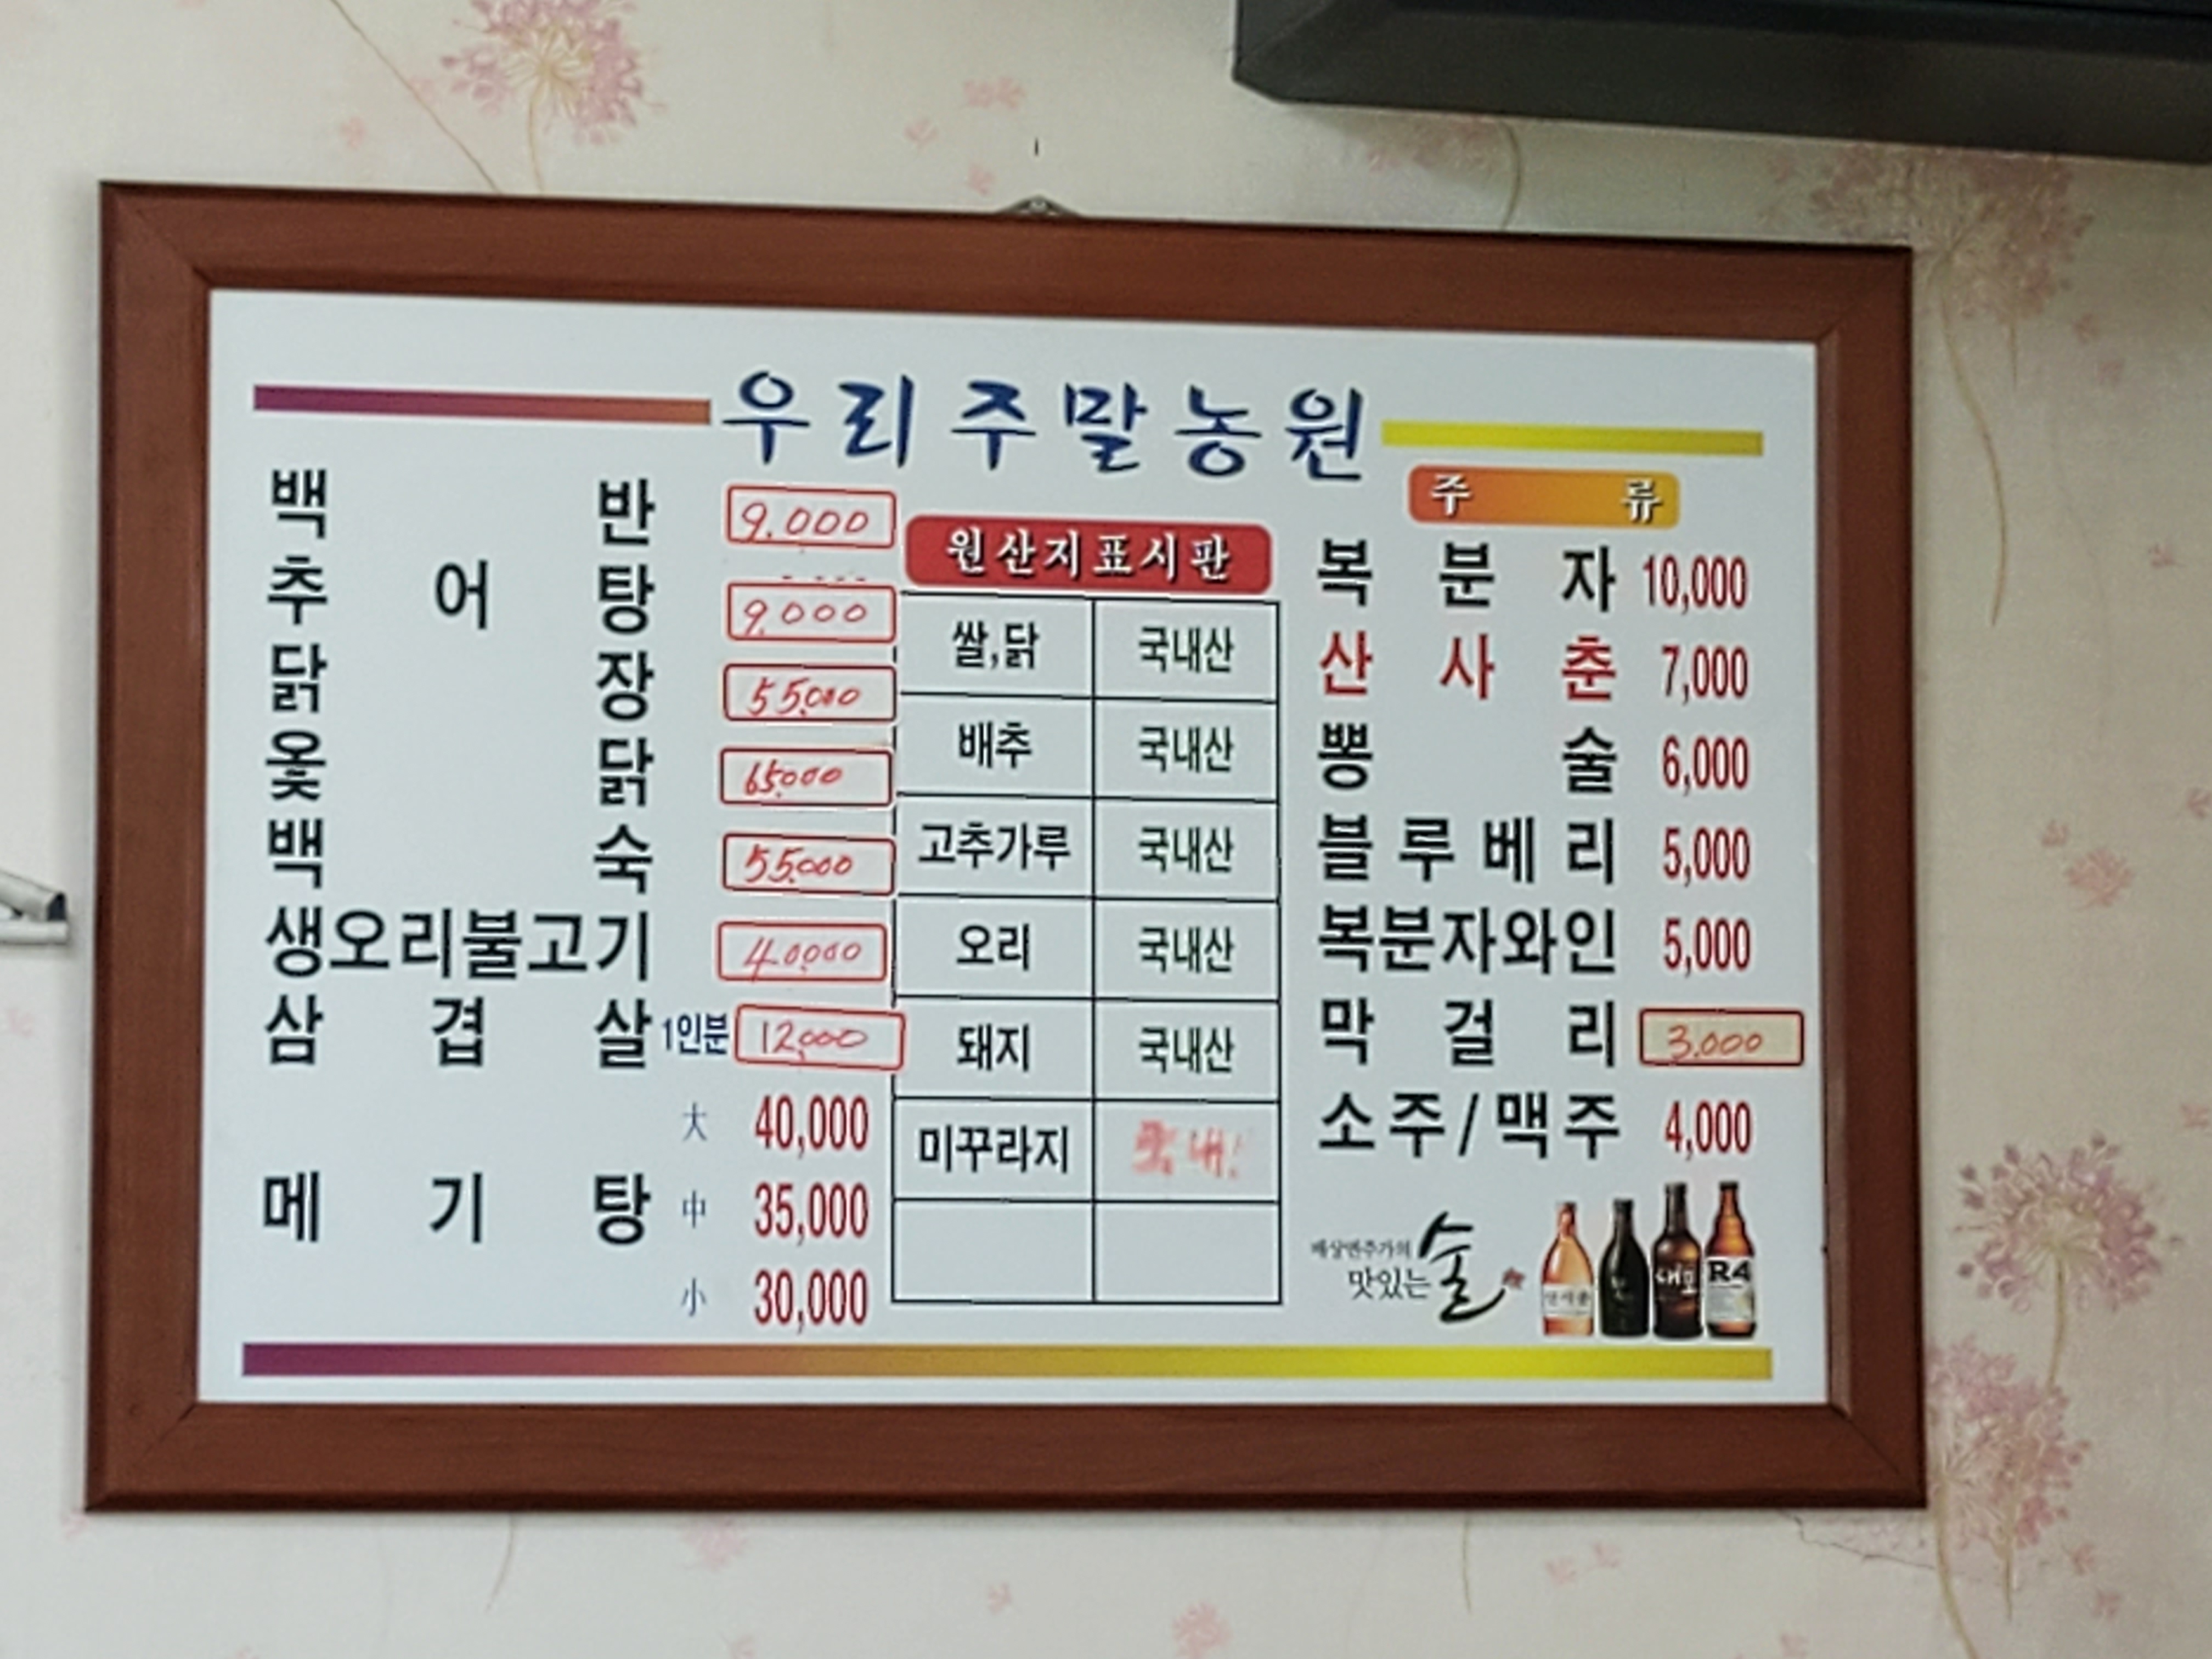 우리주말농원
백반 9.000
추어탕 9.000
닭장 55,000
옻닭 65,000
백숙 55,000
생오리불고기 40,000
삼겹살 1인분 12,000
메기탕
大 40,000
中 35,000
小 30,000
원산지표시판
쌀,닭 국내산
배추 국내산
고추가루 국내산
오리 국내산
돼지 국내산
미꾸라지
주류
복분자 10,000
산사춘 7,000
뽕술 6,000
블루베리 5,000
복분자와인 5,000
막걸리 3.000
소주/맥주 4,000
배상면주가의
맛있는 술
R4